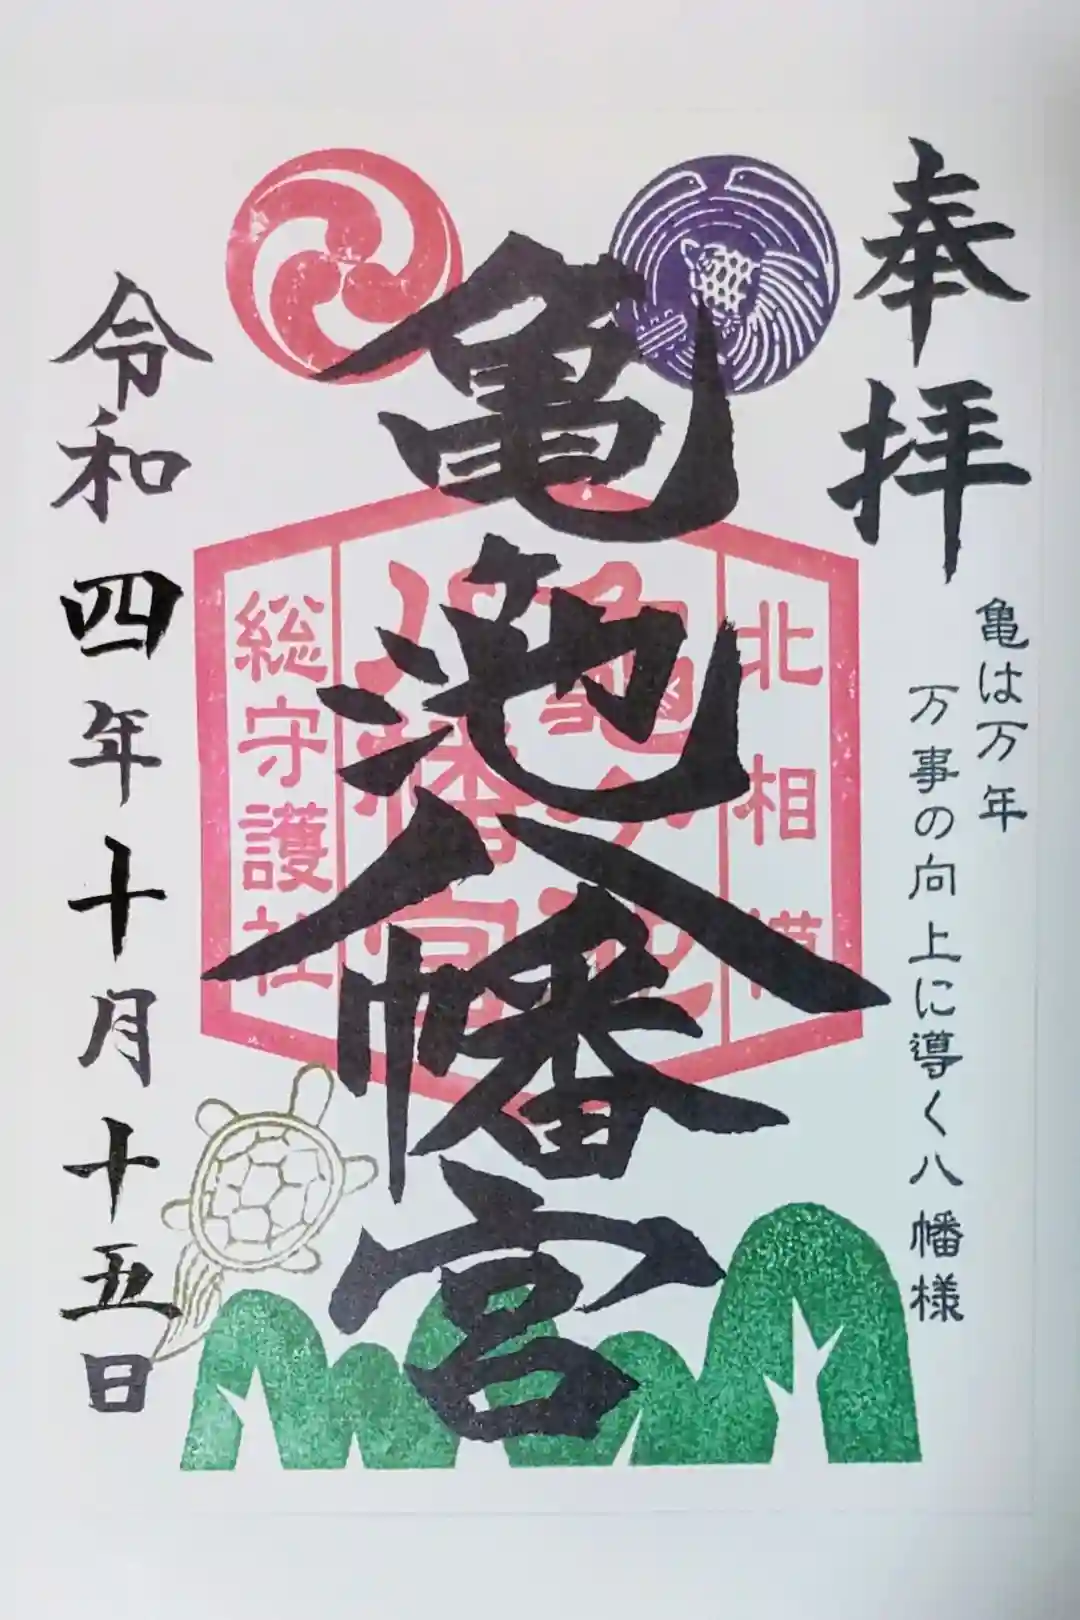 奉拝
亀は万年
万事の向上に導く八幡様
亀池八幡宮
北相模
亀ヶ池
八幡宮
総守護社
令和四年十月十五日